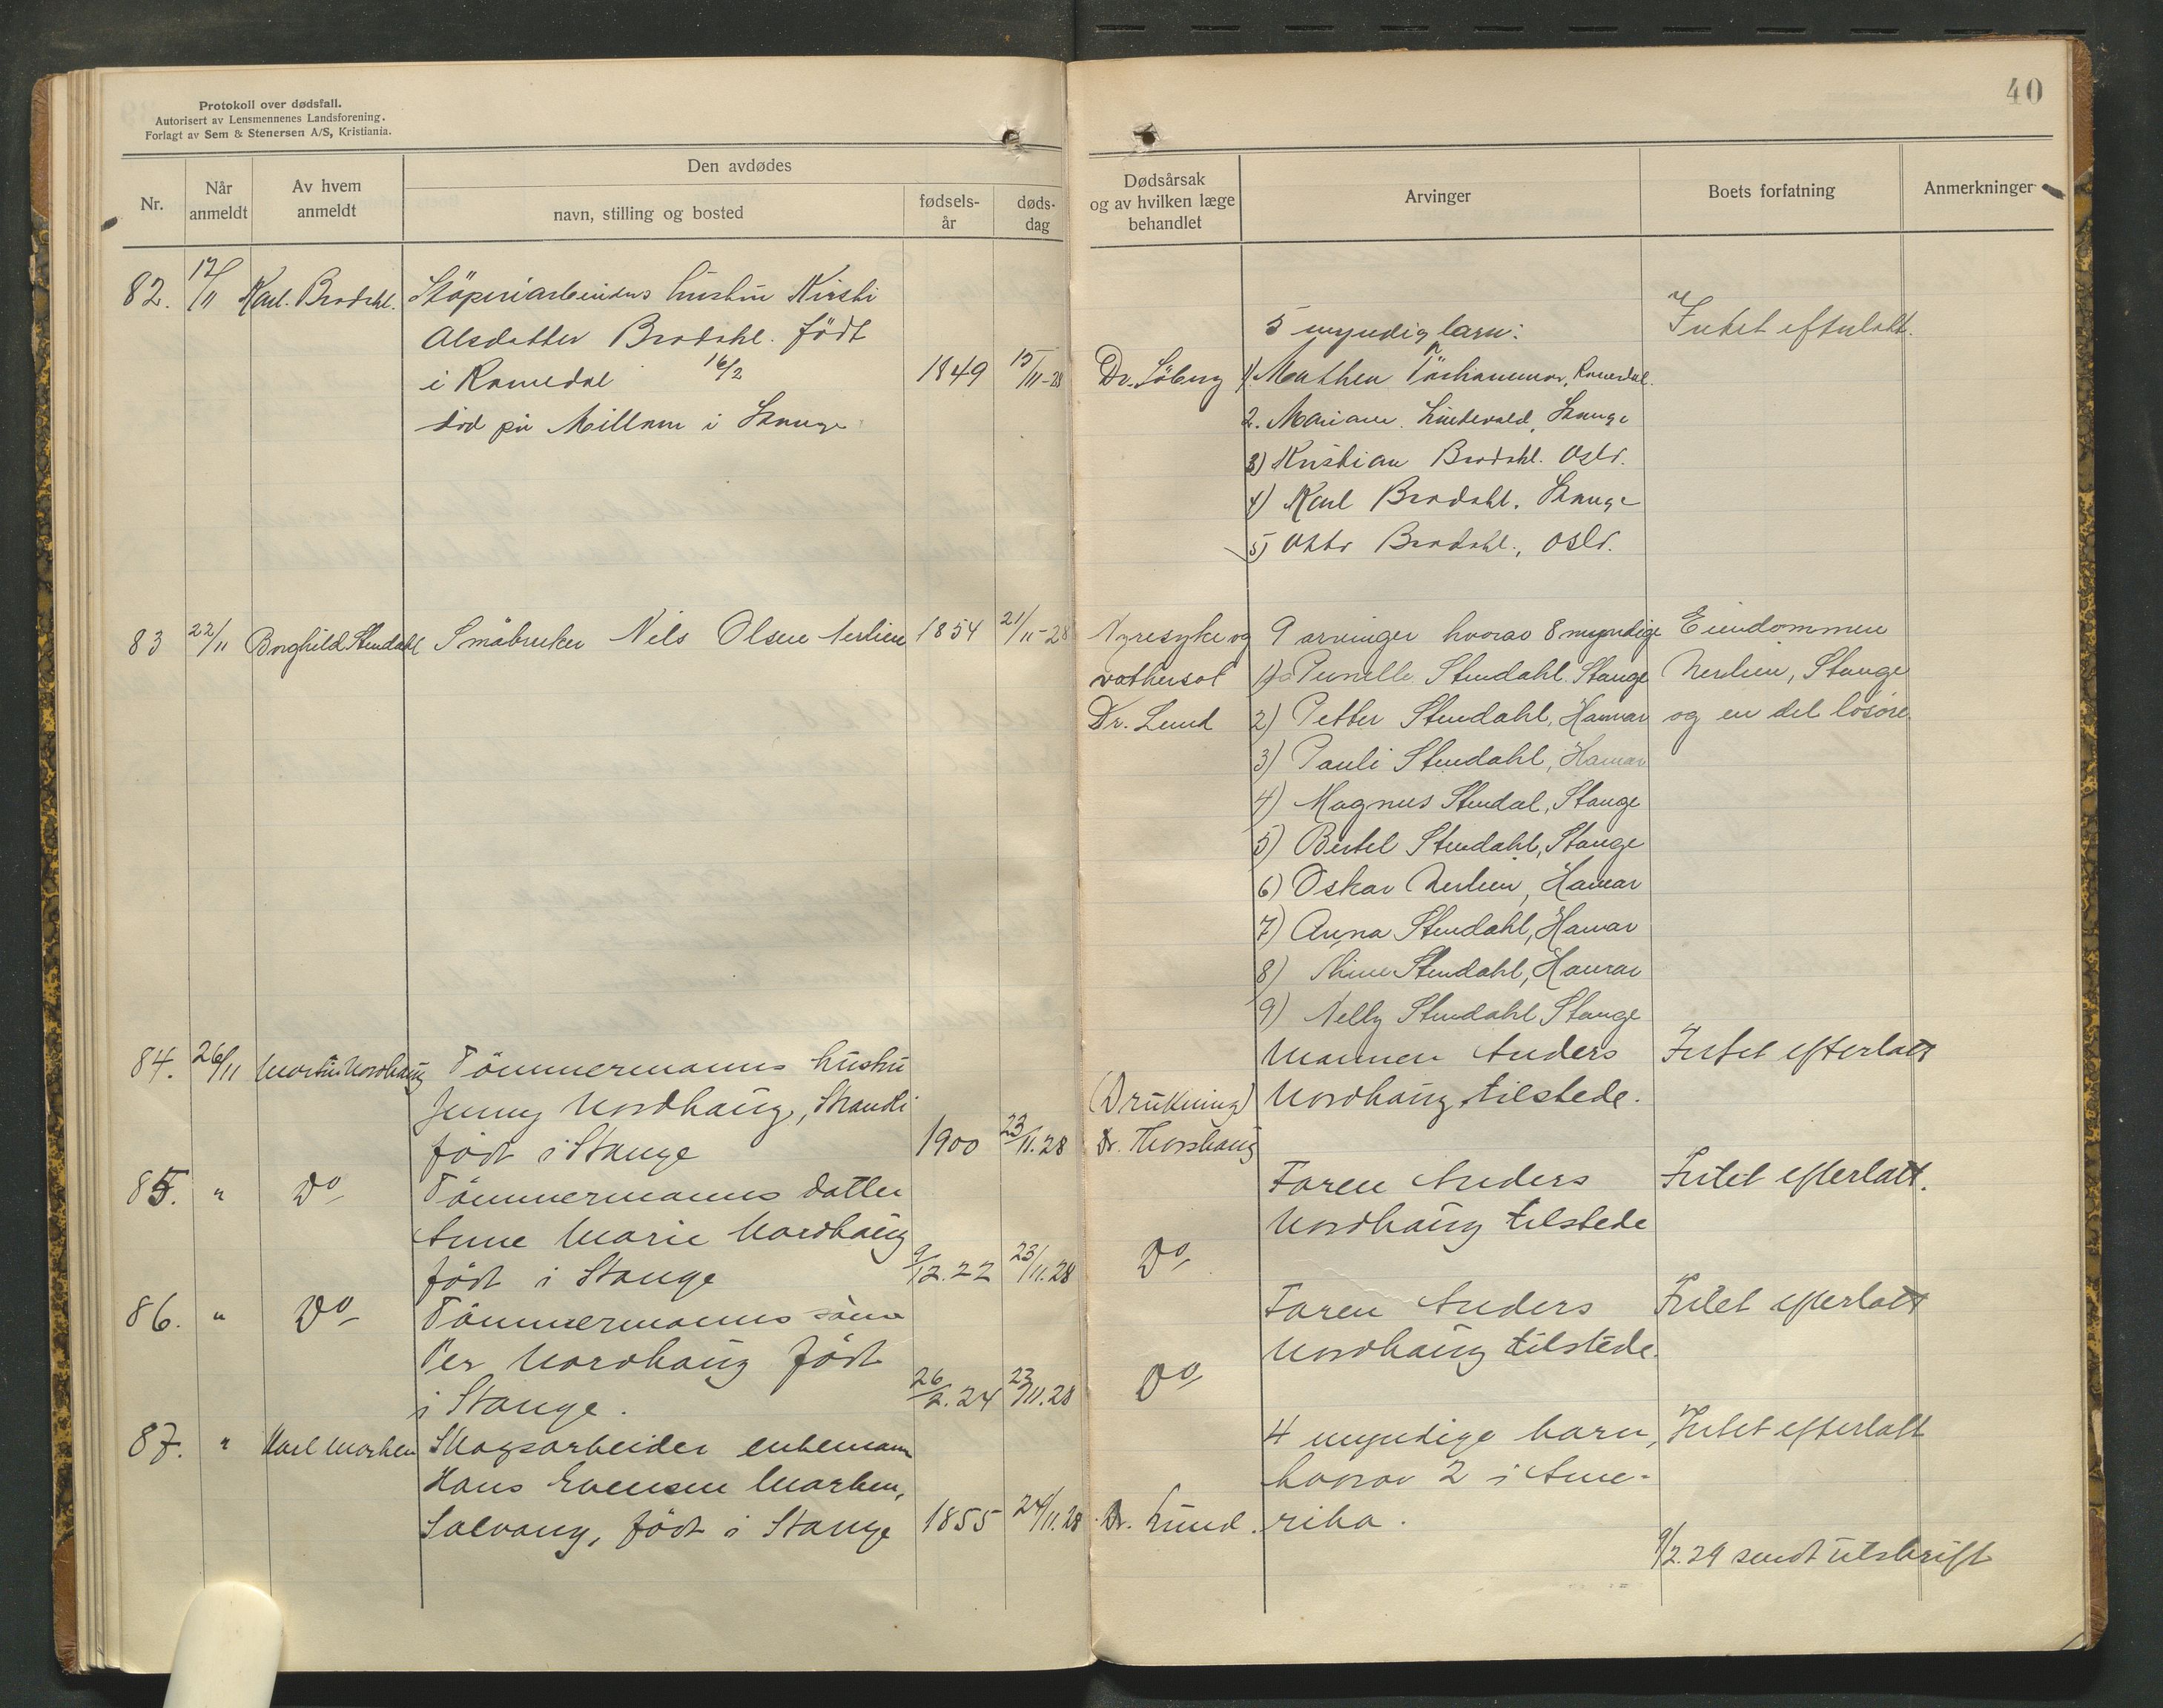 Protokoll over dødsfall.
Autorisert av Lensmennenes Landsforening.
Forlagt av Sem & Stenersen A/S, Kristiania.
40
Nr.
Når anmeldt
Av hvem anmeldt
Den avdødes
navn, stilling og bosted
fødsels-
år
døds-
dag
Dødsårsak
og av hvilken læge
behandlet
Arvinger
Boets forfatning
Anmerkninger
82. 17/11 Karl Brodahl. Støperiarbeiders hustru Kirsti
Olsdatter Brodahl. født
i Romedal 16/2 1849 15/11-28
død på Millom i Stange
Dr. Søberg
5 myndig barn:
1) Mathea Romedal.
2. Mariane Lindevald, Stange
3) Kristian Brodahl. Oslo.
4) Karl Brodahl. Stange
5) Otto Brodahl., Oslo.
Intet efterlatt.
83 22/11 Borghild Stendahl Småbruker Nils Olsen Nerlien 1854 21/11-28
Nyresyke og
vathersot
Dr. Lund
9 arvinger hvorav 8 myndige
1) Pernille Stendahl Stange
2) Petter Stendahl, Hamar
3) Pauli Stendahl, Hamar
4) Magnus Stendal, Stange
5) Bertel Stendahl, Stange
6) Oskar Nerlien, Hamar
7) Anna Stendahl, Hamar
8) Stendahl, Hamar
9) Nelly Stendahl Stange
Eiendommen
Nerlien, Stange
og en del løsøre.
84. 26/11 Martin Nordhaug Tømmermanns hustru
Jenny Nordhaug,
født i Stange 1900 23/11.28
(Drukning)
Dr. Thorshaug
Mannen Anders
Nordhaug tilstede.
Intet efterlatt
85. " Do Tømmermanns datter
Anne Marie Nordhaug
født i Stange 9/12.22 23/11.28
Do
Faren Anders
Nordhaug tilstede
Intet efterlatt.
86. " Do Tømmermanns sønn
Per Nordhaug født
i Stange. 26/2.24 23/11.28
Do
Faren Anders
Nordhaug tilstede.
Intet efterlatt
87. " Karl Morken Skogsarbeider enkemann
Hans Evensen Morken,
Solvang, født i Stange 1855 24/11.28
Dr. Lund.
4 myndige barn,
hvorav 2 i Ame-
rika.
Intet efterlatt
9/2.29 sendt utskrift